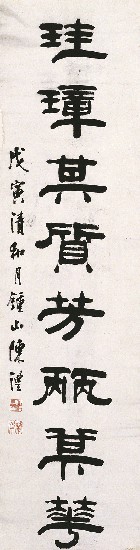 珪璋其質芳丽其華
戊寅清和月鍾山陳澧